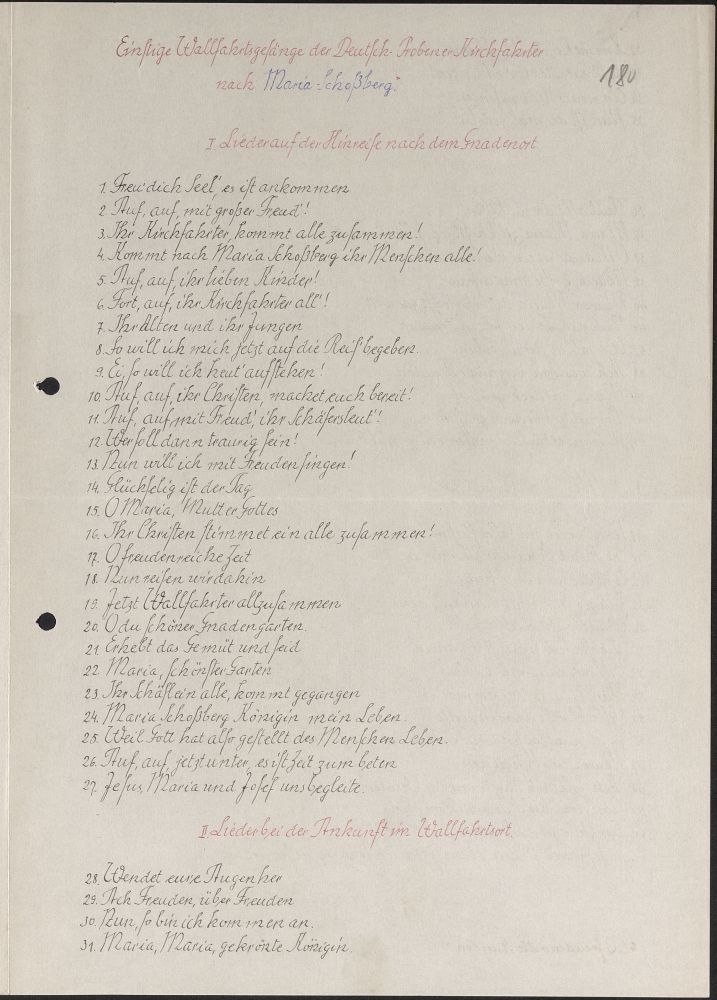 Einstige Wallfahrtsgesänge der Deutsch-Probener Kirchfahrter
nach "Maria-Schoßberg."
180
I. Lieder auf der Hinreise nach dem Gnadenort
1. Freu' dich Seel', es ist ankommen
2. Auf, auf, mit großer Freud'!
3. Ihr Kirchfahrter, kommt alle zusammen!
4. Kommt nach Maria Schoßberg ihr Menschen alle!
5. Auf, auf, ihr lieben Kinder!
6. Fort, auf, ihr Kirchfahrter all'!
7. Ihr Alten und ihr Jungen
8. So will ich mich jetzt auf die Reis' begeben.
9. Ei, so will ich heut' aufstehen!
10. Auf, auf, ihr Christen, machet euch bereit!
11. Auf, auf mit Freud', ihr Schäfersleut'!
12. Wer soll dann traurig sein!
13. Nun will ich mit Freuden singen!
14. Glückselig ist der Tag
15. O Maria, Mutter Gottes
16. Ihr Christen stimmet ein alle zusammen!
17. O freudenreiche Zeit
18. Nun reisen wir dahin
19. Jetzt Wallfahrter allzusammen
20. O du schöner Gnadengarten.
21. Erhebt das Gemüt und seid
22. Maria, schönster Garten
23. Ihr Schäflein alle, kommt gegangen
24. Maria Schoßberg Königin mein Leben.
25. Weil Gott hat also gestellt des Menschen Leben.
26. Auf, auf, jetzt unter, es ist Zeit zum beten
27. Jesus, Maria und Josef uns begleite.
II. Lieder bei der Ankunft im Wallfahrtsort.
28. Wendet eure Augen her
29. Ach Freuden, über Freuden
30. Nun, so bin ich kommen an.
31. Maria, Maria, gekrönte Königin.